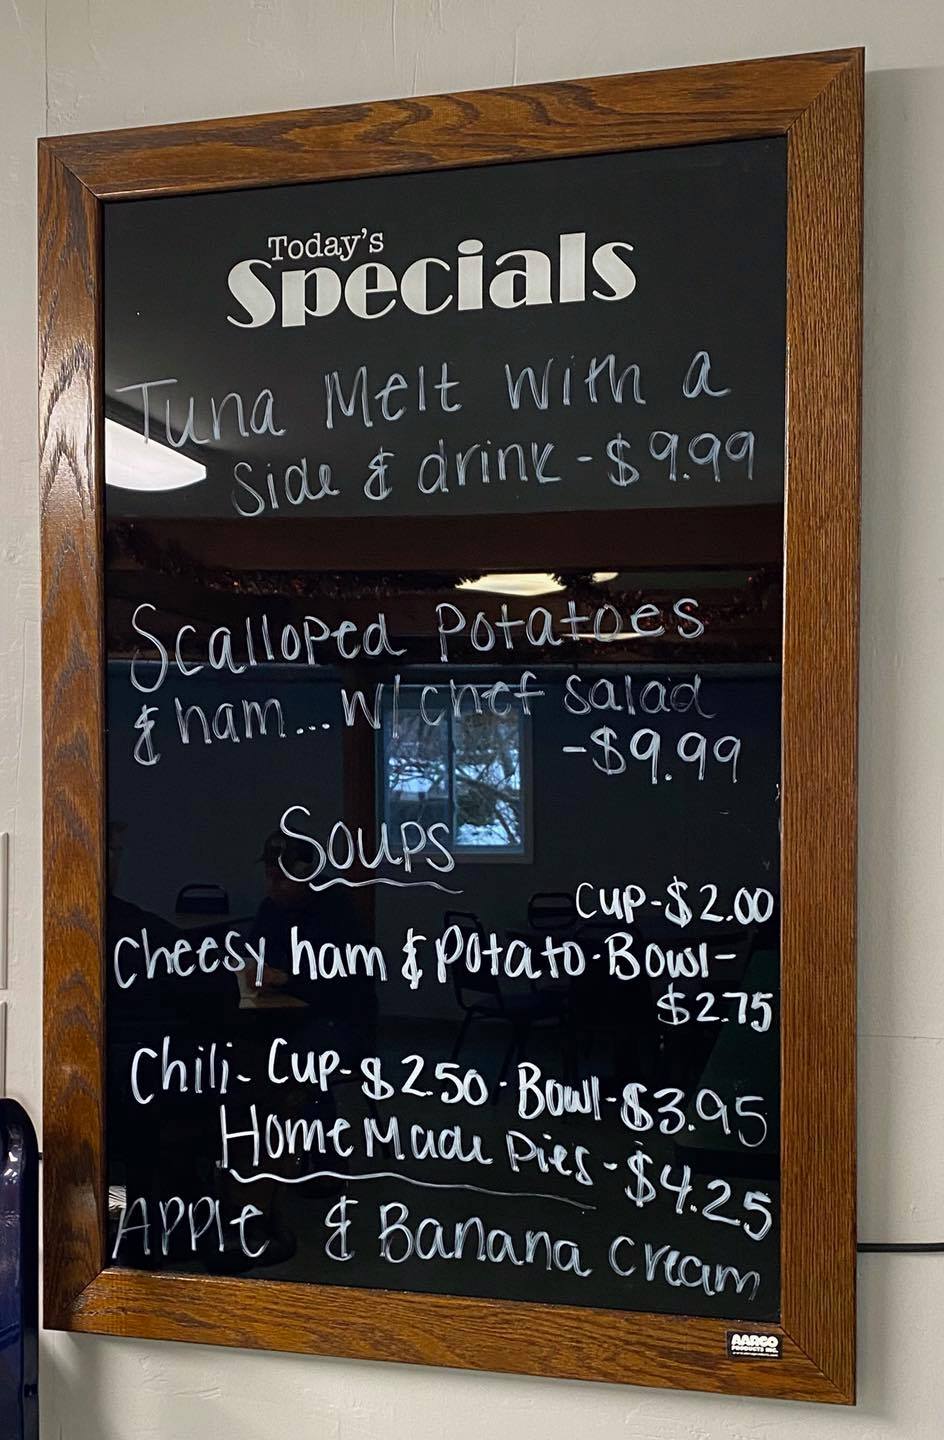 Today's
Specials
Tuna Melt with a
side & drink - $9.99
Scalloped Potatoes
& ham... w/ chef salad
- $9.99
Soups
Cup - $2.00
Cheesy ham & Potato · Bowl -
$2.75
Chili - Cup - $2.50 · Bowl - $3.95
HomeMade Pies - $4.25
Apple & Banana Cream
AARCO
PRODUCTS INC.